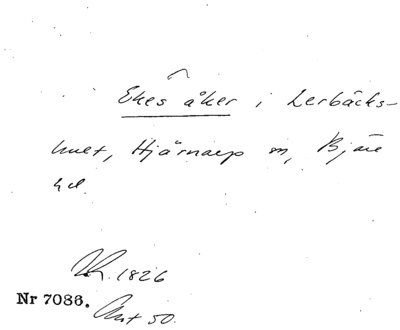 Ekes åker i Lerbäcks-
hult, Hjärnarp sn, Bjäre
hd.
1826
Nr 7086. Ant 50.